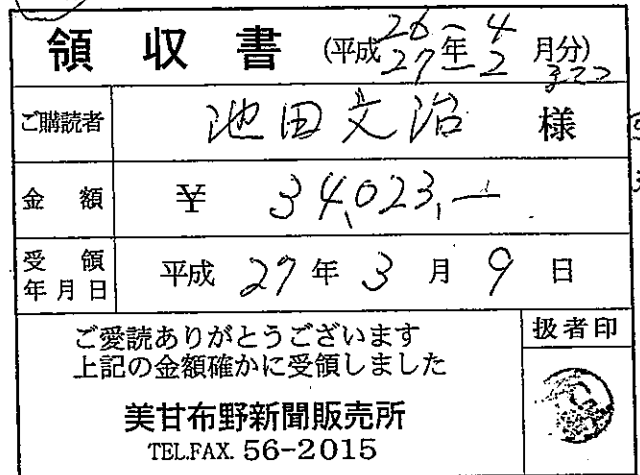 領収書 (平成 26-4
27年-2 月分)
まで
ご購読者 池田文治 様
金額 ¥ 34,023,-
受領年月日 平成 27年 3月 9日
ご愛読ありがとうございます
上記の金額確かに受領しました
扱者印
美甘布野新聞販売所
TEL.FAX. 56-2015